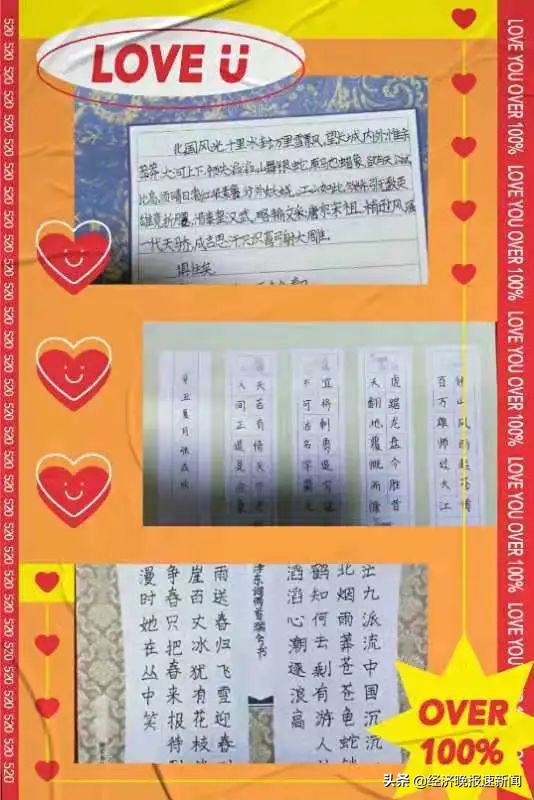 LOVE U
北国风光,千里冰封,万里雪飘,望长城内外惟余
莽莽,大河上下,顿失滔滔,山舞银蛇,原驰蜡象,欲与天公试
比高,须晴日,看红装素裹,分外妖娆,江山如此多娇,引无数英
雄竞折腰,惜秦皇汉武,略输文采,唐宗宋祖,稍逊风骚
一代天骄,成吉思汗,只识弯弓射大雕
俱往矣
百万雄师过大江
虎踞龙盘今胜昔
天翻地覆慨而慷
宜将剩勇追穷
不可沽名学霸王
天若有情天亦老
人间正道是沧桑
辛丑夏月张成
九派流中国沉沉
北烟雨莽苍苍龟蛇
鹤知何去剩有游人
滔滔心潮逐浪高
泽东词两首
雨送春归飞雪迎春
崖百丈冰犹有花枝
争春只把春来报待
漫时她在丛中笑
OVER
100%
520 520 520 520 520 520 520 520 520 520 520 520 520 520 520 520 520 520
LOVE YOU OVER 100% LOVE YOU OVER 100% LOVE YOU OVER 100% LOVE YOU OVER 100% LOVE YOU OVER
头条 @经济晚报速新闻